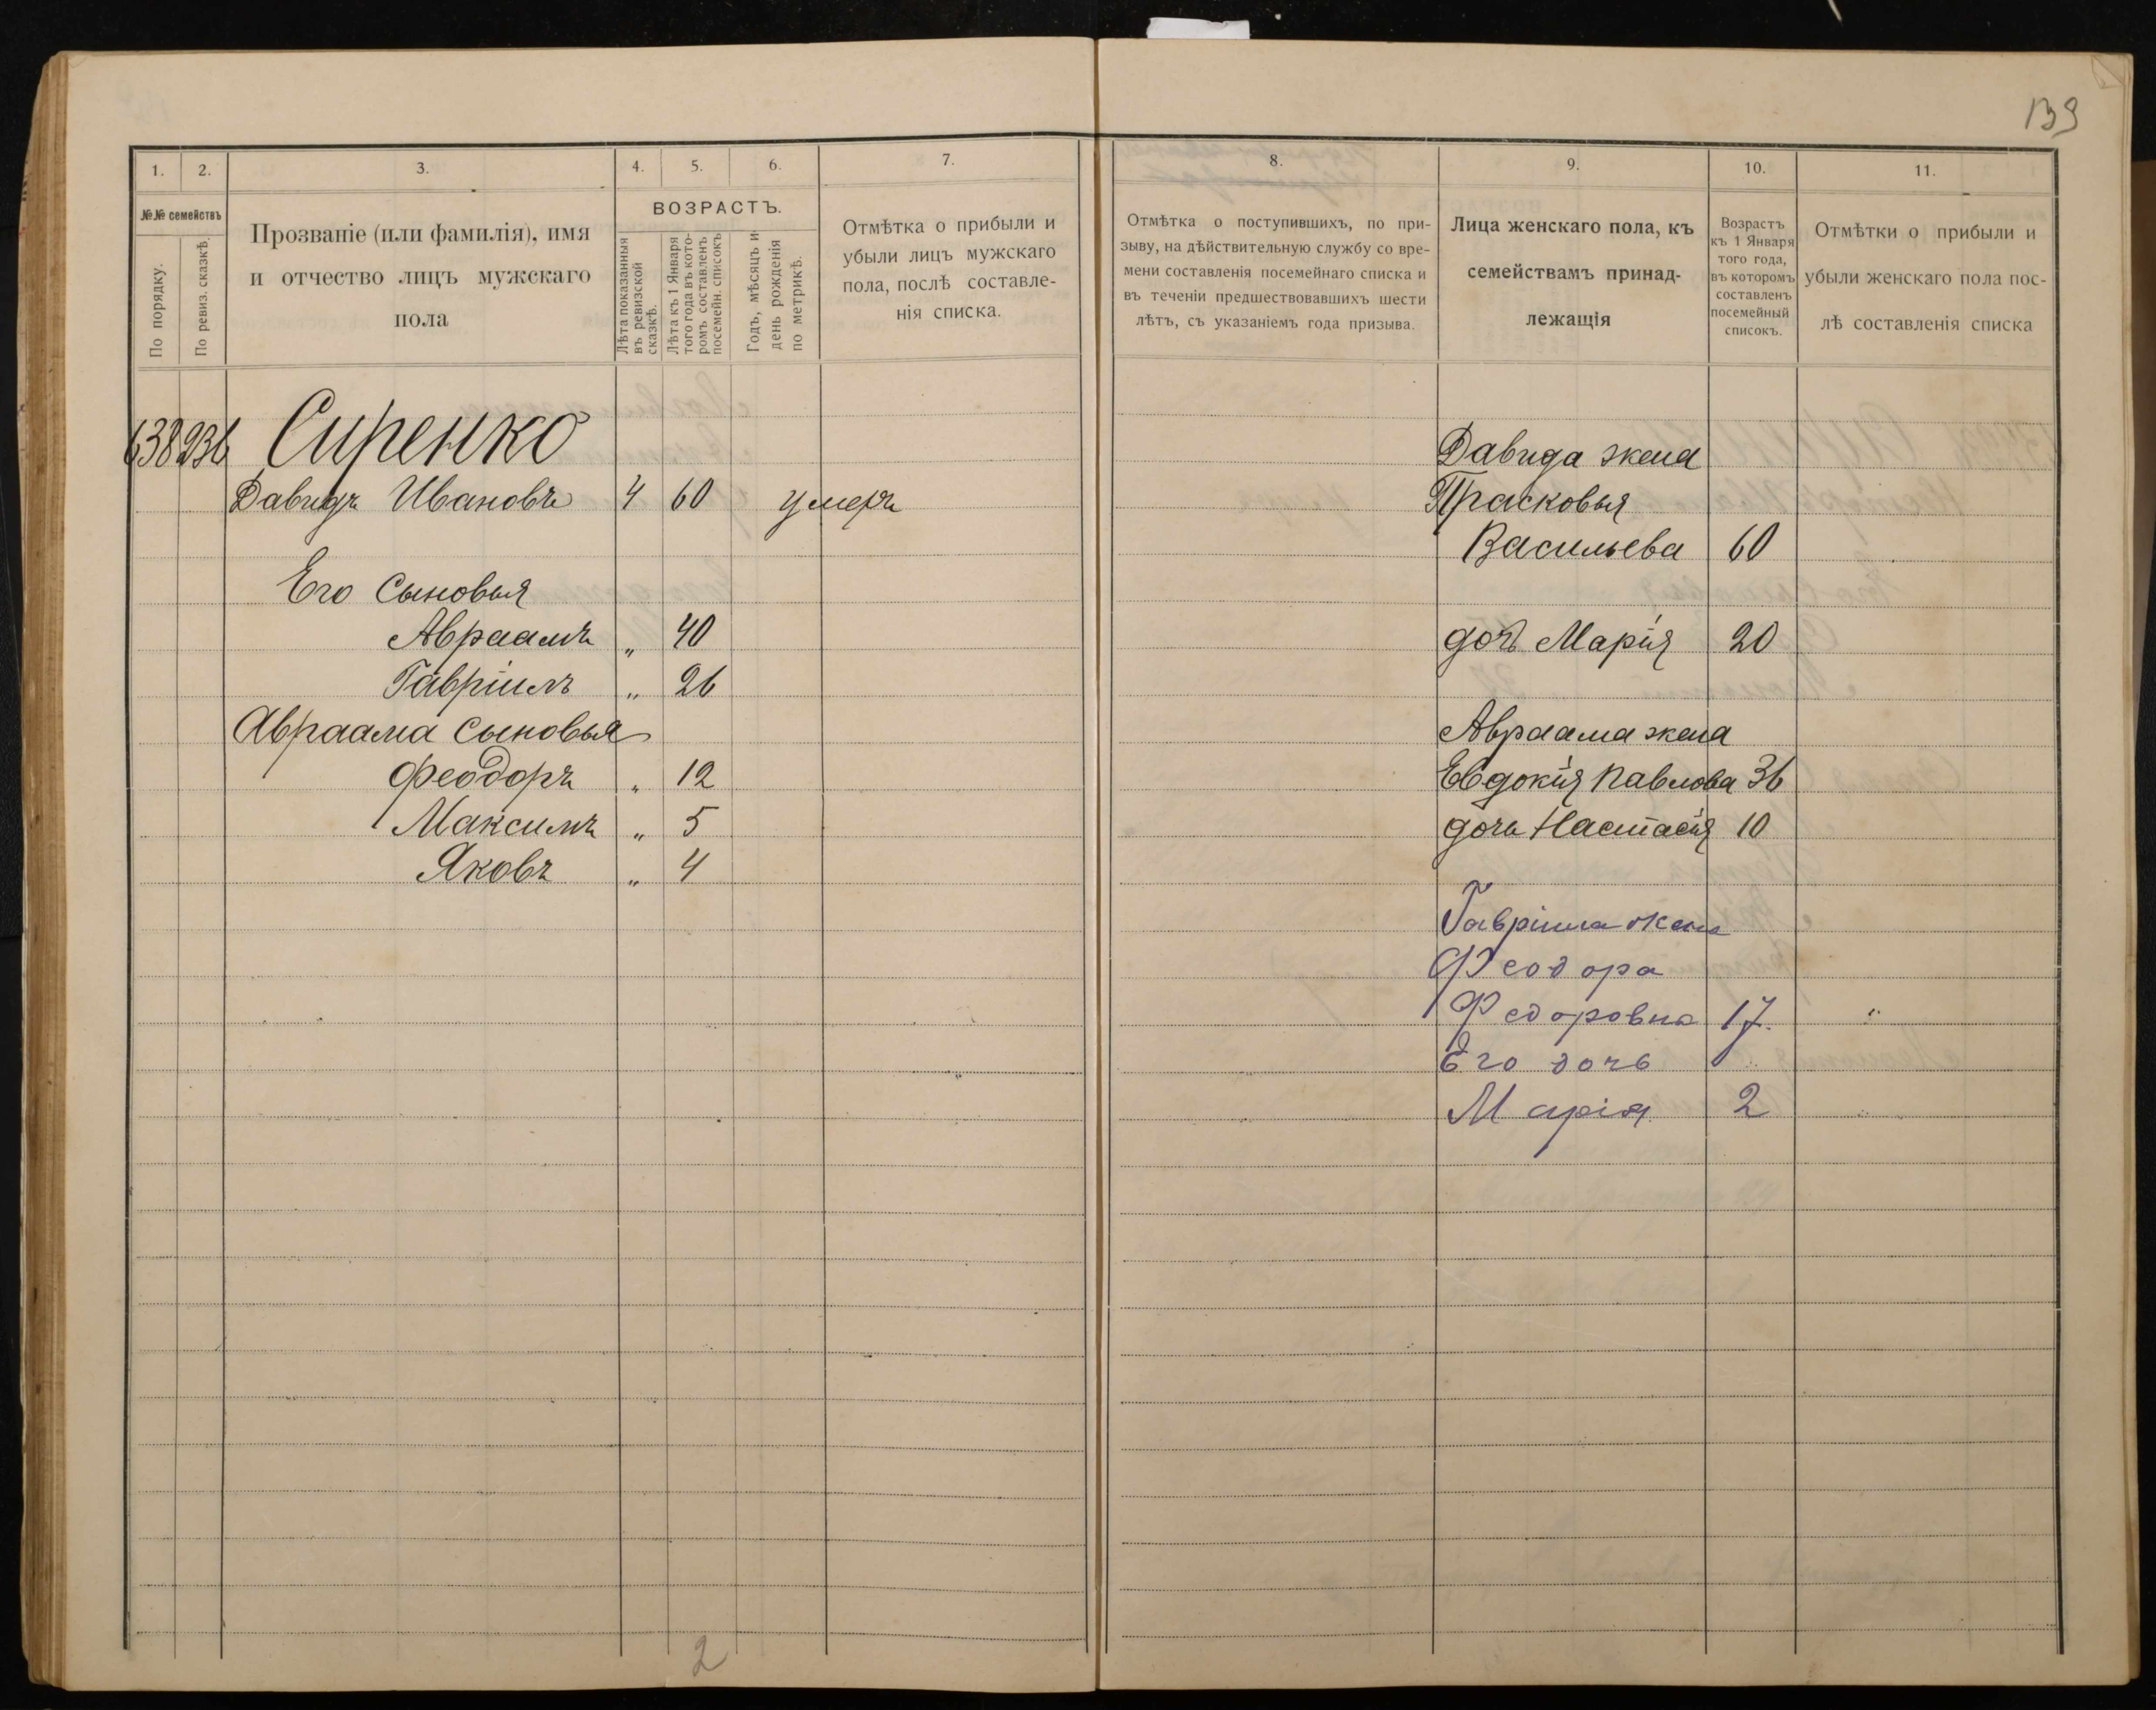 139
1.
2.
3.
4.
5.
6.
7.
№№ семействъ
По порядку.
По ревиз. сказкѣ.
Прозваніе (или фамилія), имя
и отчество лицъ мужскаго
пола
ВОЗРАСТЪ.
Лѣта показанныя
въ ревизской
сказкѣ.
Лѣта къ 1 Января
того года въ кото-
ромъ составленъ
посемейн. списокъ
Годъ, мѣсяцъ и
день рожденія
по метрикѣ.
Отмѣтка о прибыли и
убыли лицъ мужскаго
пола, послѣ составле-
нія списка.
638 236 Сиренко
Давидъ Ивановъ 4 60 умеръ
Его Сыновья
Авраамъ „ 40
Гавріилъ „ 26
Авраама Сыновья
Феодоръ „ 12
Максимъ „ 5
Яковъ „ 4
2
8.
9.
10.
11.
Отмѣтка о поступившихъ, по при-
зыву, на дѣйствительную службу со вре-
мени составленія посемейнаго списка и
въ теченіи предшествовавшихъ шести
лѣтъ, съ указаніемъ года призыва.
Лица женскаго пола, къ
семействамъ принад-
лежащія
Возрастъ
къ 1 Января
того года,
въ которомъ
составленъ
посемейный
списокъ.
Отмѣтки о прибыли и
убыли женскаго пола пос-
лѣ составленія списка
Давида жена
Прасковья
Васильева 60
дочь Марія 20
Авраама жена
Евдокія Павлова 36
дочь Настасія 10
Гавріила жена
Феодора
Федоровна 17. „
Его дочь
Марія 2 „